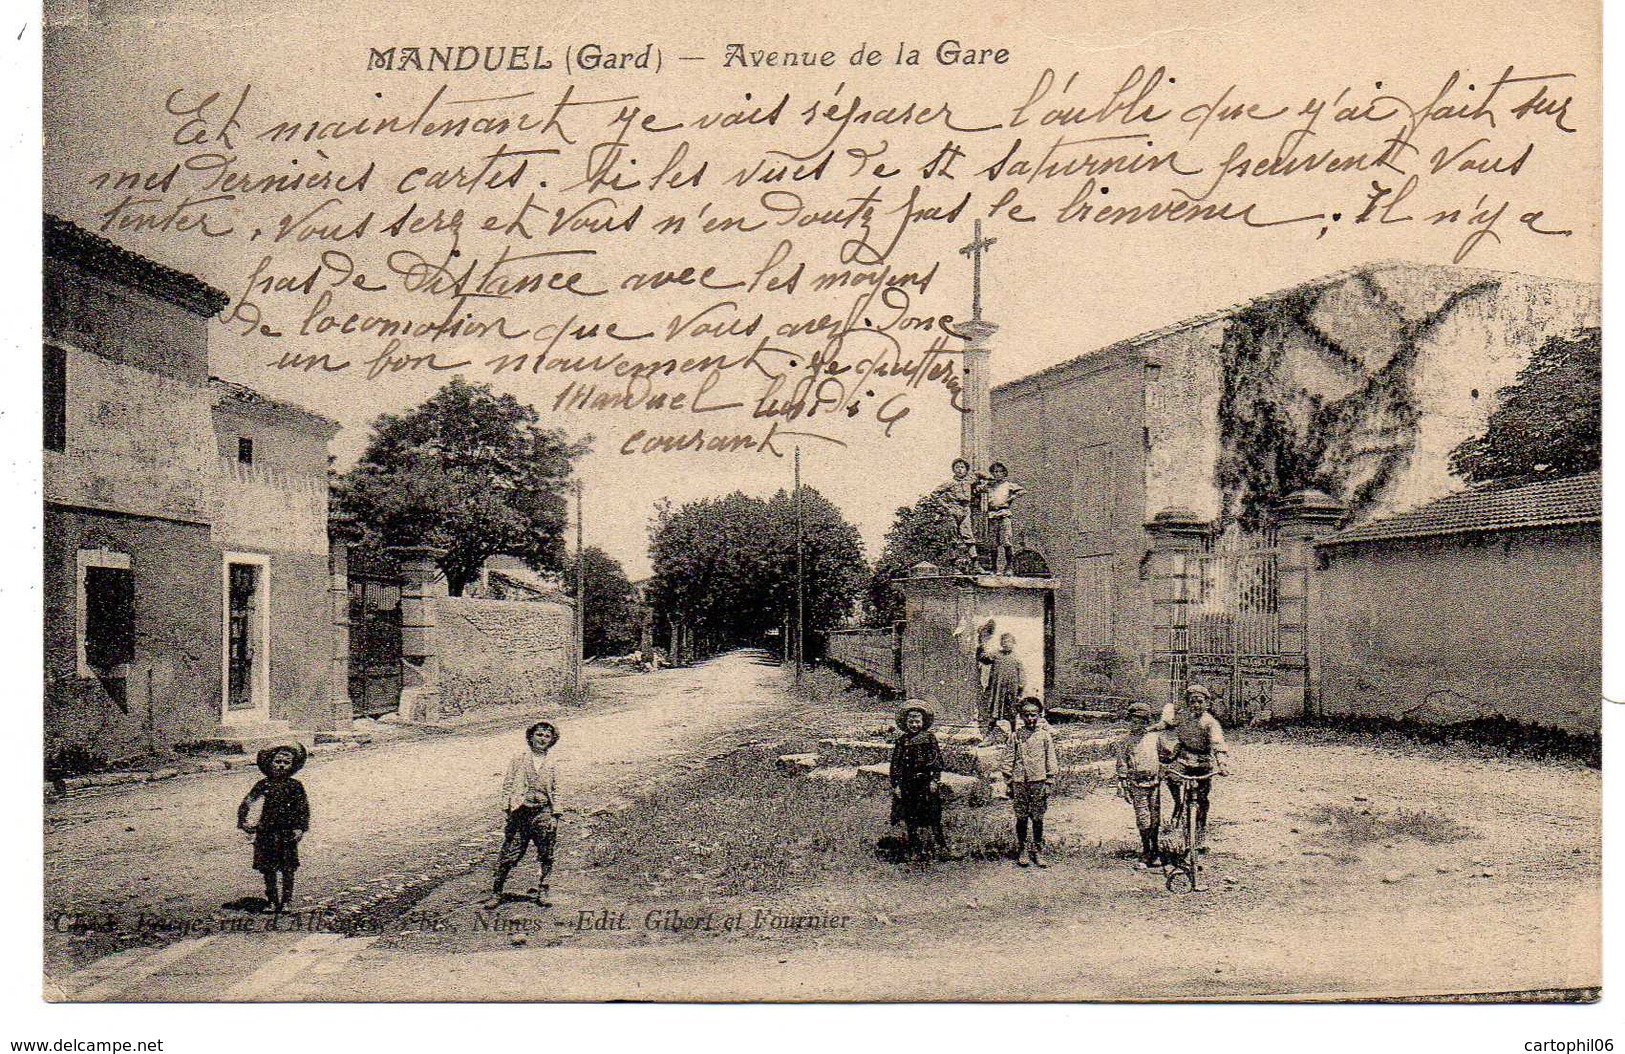 MANDUEL (Gard) — Avenue de la Gare
Et maintenant je vais réparer l'oubli que j'ai fait sur
mes dernières cartes. Si les vues de St Saturnin peuvent vous
tenter, vous serez et vous n'en doutez pas le bienvenu. Il n'y a
pas de distance avec les moyens
de locomotion que vous avez. Donc
un bon mouvement. Je quitterai
Manduel lundi 6
courant
rue d'Alberas, bis, Nîmes — Edit. Gibert et Fournier
www.delcampe.net
cartophil06